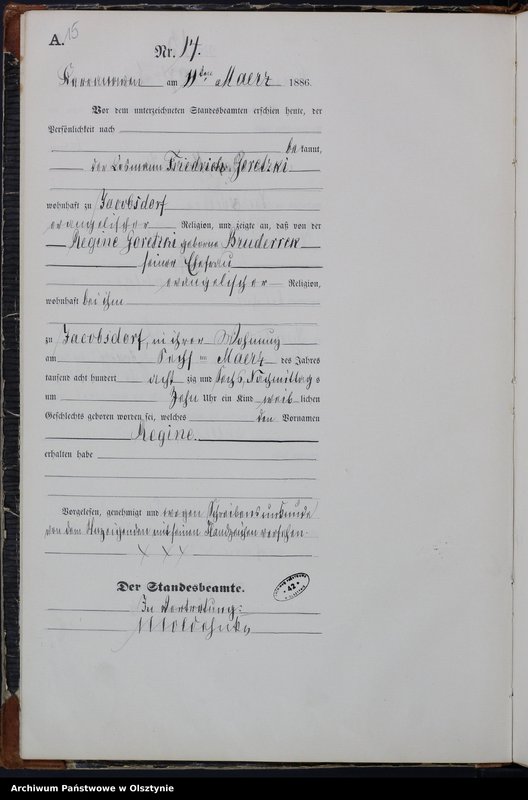 A. 15
Nr. 14.
am 11ten Maerz 1886.
Vor dem unterzeichneten Standesbeamten erschien heute, der
Persönlichkeit nach
be kannt,
der Losmann Friedrich Goretzki
wohnhaft zu Jacobsdorf
evangelischer Religion, und zeigte an, daß von der
Regine Goretzki geborene
seiner Ehefrau
evangelischer Religion,
wohnhaft bei ihm
zu Jacobsdorf, in ihrer Wohnung
am sechs ten Maerz des Jahres
tausend acht hundert acht zig und sechs, Nachmittags
um Zehn Uhr ein Kind weib lichen
Geschlechts geboren worden sei, welches den Vornamen
Regine.
erhalten habe
Vorgelesen, genehmigt und wegen Schreibensunkunde
von dem Anzeigenden mit seinem Handzeichen versehen.
X X X
Der Standesbeamte.
In Vertretung:
42
Archiwum Państwowe w Olsztynie